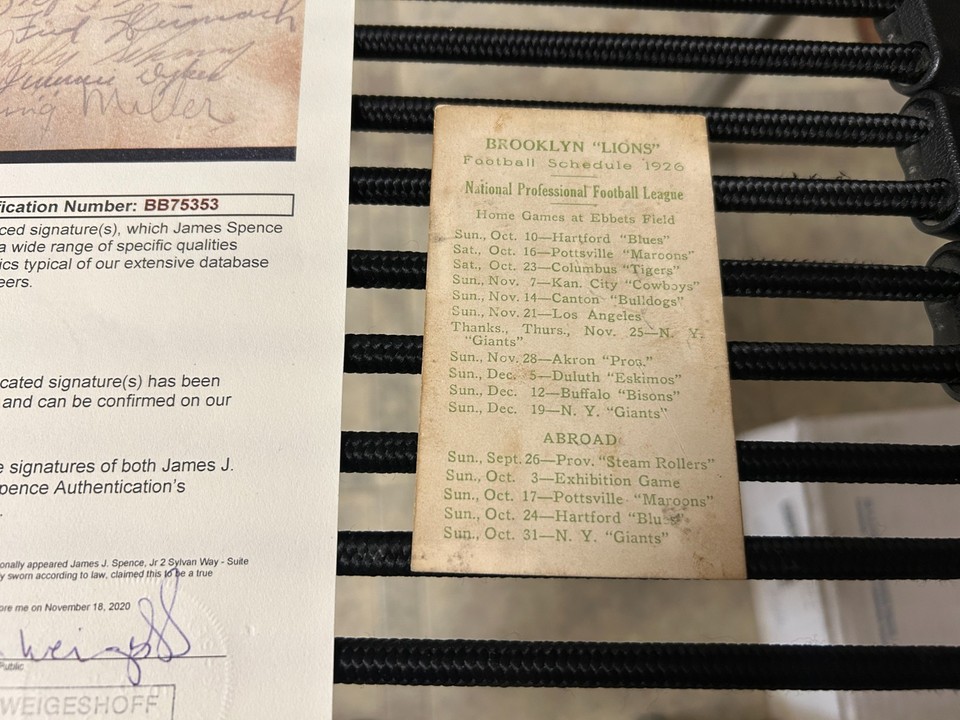 Miller
fication Number: BB75353
ced signature(s), which James Spence
a wide range of specific qualities
ics typical of our extensive database
eers.
cated signature(s) has been
and can be confirmed on our
e signatures of both James J.
pence Authentication's
onally appeared James J. Spence, Jr 2 Sylvan Way - Suite
y sworn according to law, claimed this to be a true
ore me on November 18, 2020
Public
WEIGESHOFF
BROOKLYN "LIONS"
Football Schedule 1926
National Professional Football League
Home Games at Ebbets Field
Sun., Oct. 10—Hartford "Blues"
Sat., Oct. 16—Pottsville "Maroons"
Sat., Oct. 23—Columbus "Tigers"
Sun., Nov. 7—Kan. City "Cowboys"
Sun., Nov. 14—Canton "Bulldogs"
Sun., Nov. 21—Los Angeles
Thanks., Thurs., Nov. 25—N. Y.
"Giants"
Sun., Nov. 28—Akron "Pros."
Sun., Dec. 5—Duluth "Eskimos"
Sun., Dec. 12—Buffalo "Bisons"
Sun., Dec. 19—N. Y. "Giants"
ABROAD
Sun., Sept. 26—Prov. "Steam Rollers"
Sun., Oct. 3—Exhibition Game
Sun., Oct. 17—Pottsville "Maroons"
Sun., Oct. 24—Hartford "Blues"
Sun., Oct. 31—N. Y. "Giants"